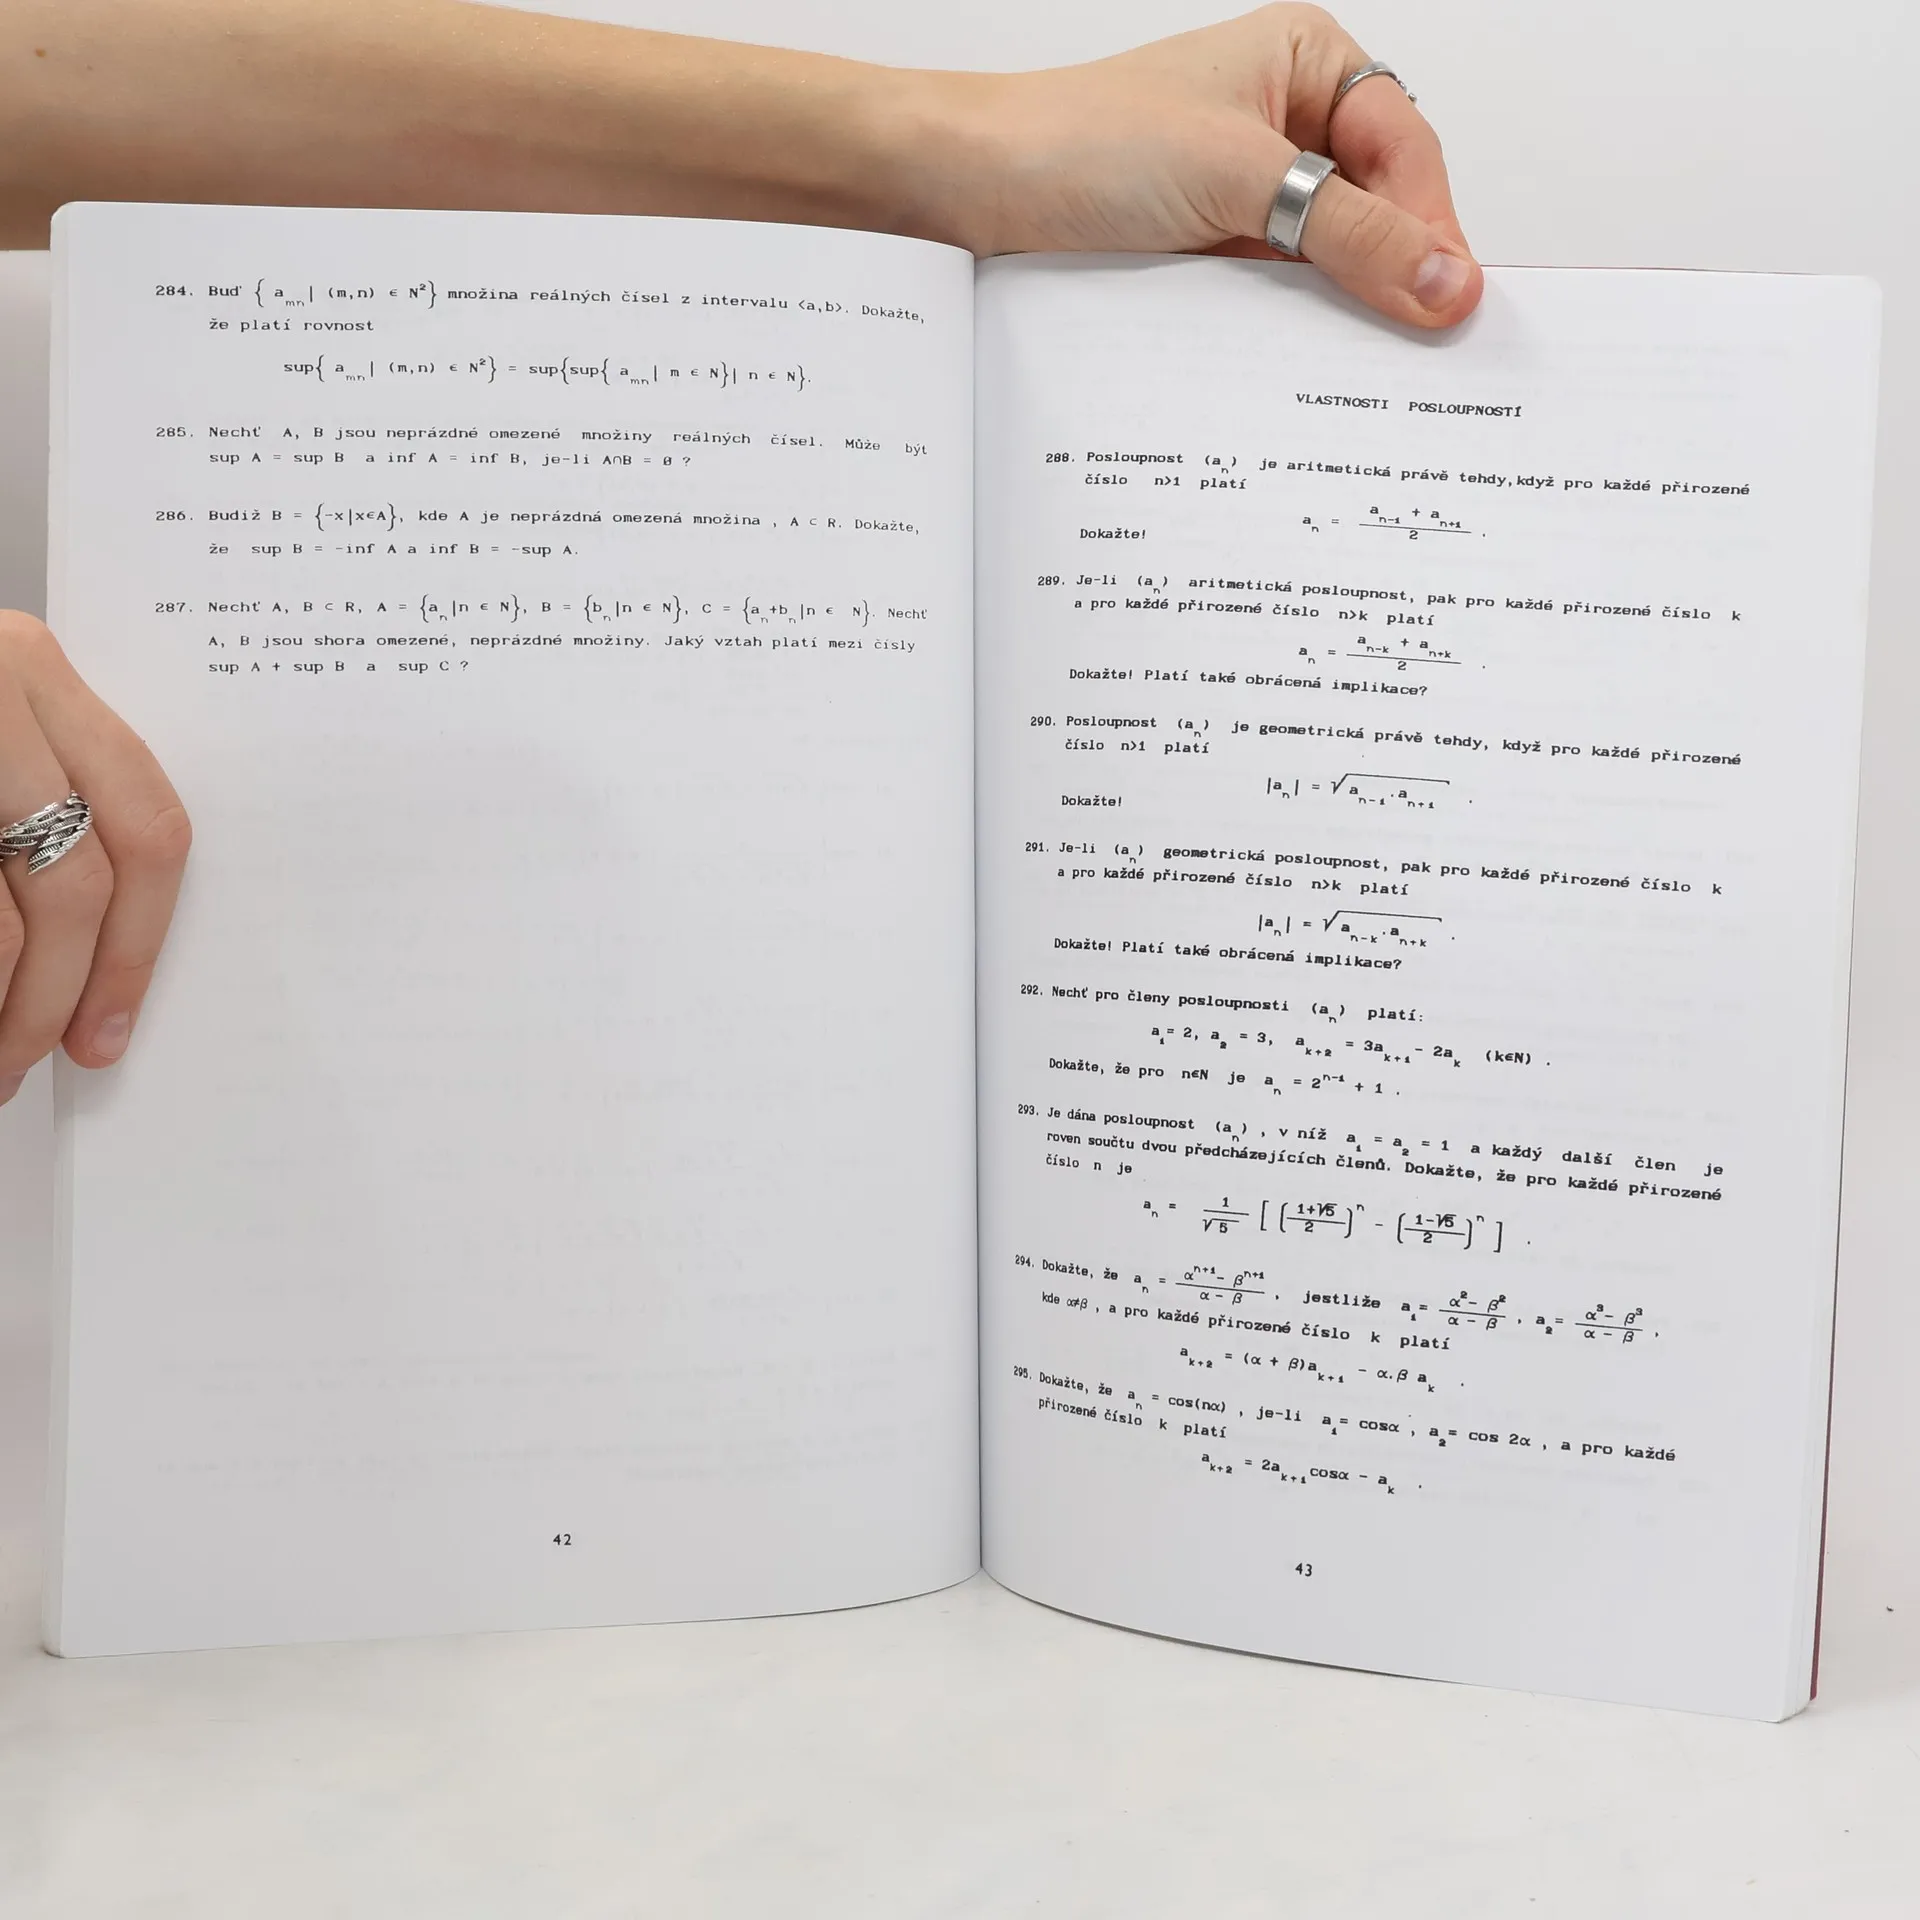 284. Buď { a_mn | (m,n) ∈ N² } množina reálných čísel z intervalu <a,b>. Dokažte,
že platí rovnost
sup{ a_mn | (m,n) ∈ N² } = sup{sup{ a_mn | m ∈ N}| n ∈ N}.
285. Nechť A, B jsou neprázdné omezené množiny reálných čísel. Může být
sup A = sup B a inf A = inf B, je-li A∩B = ∅ ?
286. Budiž B = {-x|x∈A}, kde A je neprázdná omezená množina , A ⊂ R. Dokažte,
že sup B = -inf A a inf B = -sup A.
287. Nechť A, B ⊂ R, A = {a_n |n ∈ N}, B = {b_n |n ∈ N}, C = {a_n +b_n |n ∈ N}. Nechť
A, B jsou shora omezené, neprázdné množiny. Jaký vztah platí mezi čísly
sup A + sup B a sup C ?
42
VLASTNOSTI POSLOUPNOSTÍ
288. Posloupnost (a_n) je aritmetická právě tehdy,když pro každé přirozené
číslo n>1 platí
a_n = (a_{n-1} + a_{n+1}) / 2 .
Dokažte!
289. Je-li (a_n) aritmetická posloupnost, pak pro každé přirozené číslo k
a pro každé přirozené číslo n>k platí
a_n = (a_{n-k} + a_{n+k}) / 2 .
Dokažte! Platí také obrácená implikace?
290. Posloupnost (a_n) je geometrická právě tehdy, když pro každé přirozené
číslo n>1 platí
|a_n| = √(a_{n-1} . a_{n+1}) .
Dokažte!
291. Je-li (a_n) geometrická posloupnost, pak pro každé přirozené číslo k
a pro každé přirozené číslo n>k platí
|a_n| = √(a_{n-k} . a_{n+k}) .
Dokažte! Platí také obrácená implikace?
292. Nechť pro členy posloupnosti (a_n) platí:
a_1 = 2, a_2 = 3, a_{k+2} = 3a_{k+1} - 2a_k (k∈N) .
Dokažte, že pro n∈N je a_n = 2^{n-1} + 1 .
293. Je dána posloupnost (a_n) , v níž a_1 = a_2 = 1 a každý další člen je
roven součtu dvou předcházejících členů. Dokažte, že pro každé přirozené
číslo n je
a_n = 1/√5 [ ((1+√5)/2)^n - ((1-√5)/2)^n ] .
294. Dokažte, že a_n = (α^{n+1} - β^{n+1})/(α - β) , jestliže a_1 = (α² - β²)/(α - β) , a_2 = (α³ - β³)/(α - β) ,
kde α≠β , a pro každé přirozené číslo k platí
a_{k+2} = (α + β)a_{k+1} - α.β a_k .
295. Dokažte, že a_n = cos(nα) , je-li a_1 = cosα , a_2 = cos 2α , a pro každé
přirozené číslo k platí
a_{k+2} = 2a_{k+1} cosα - a_k .
43